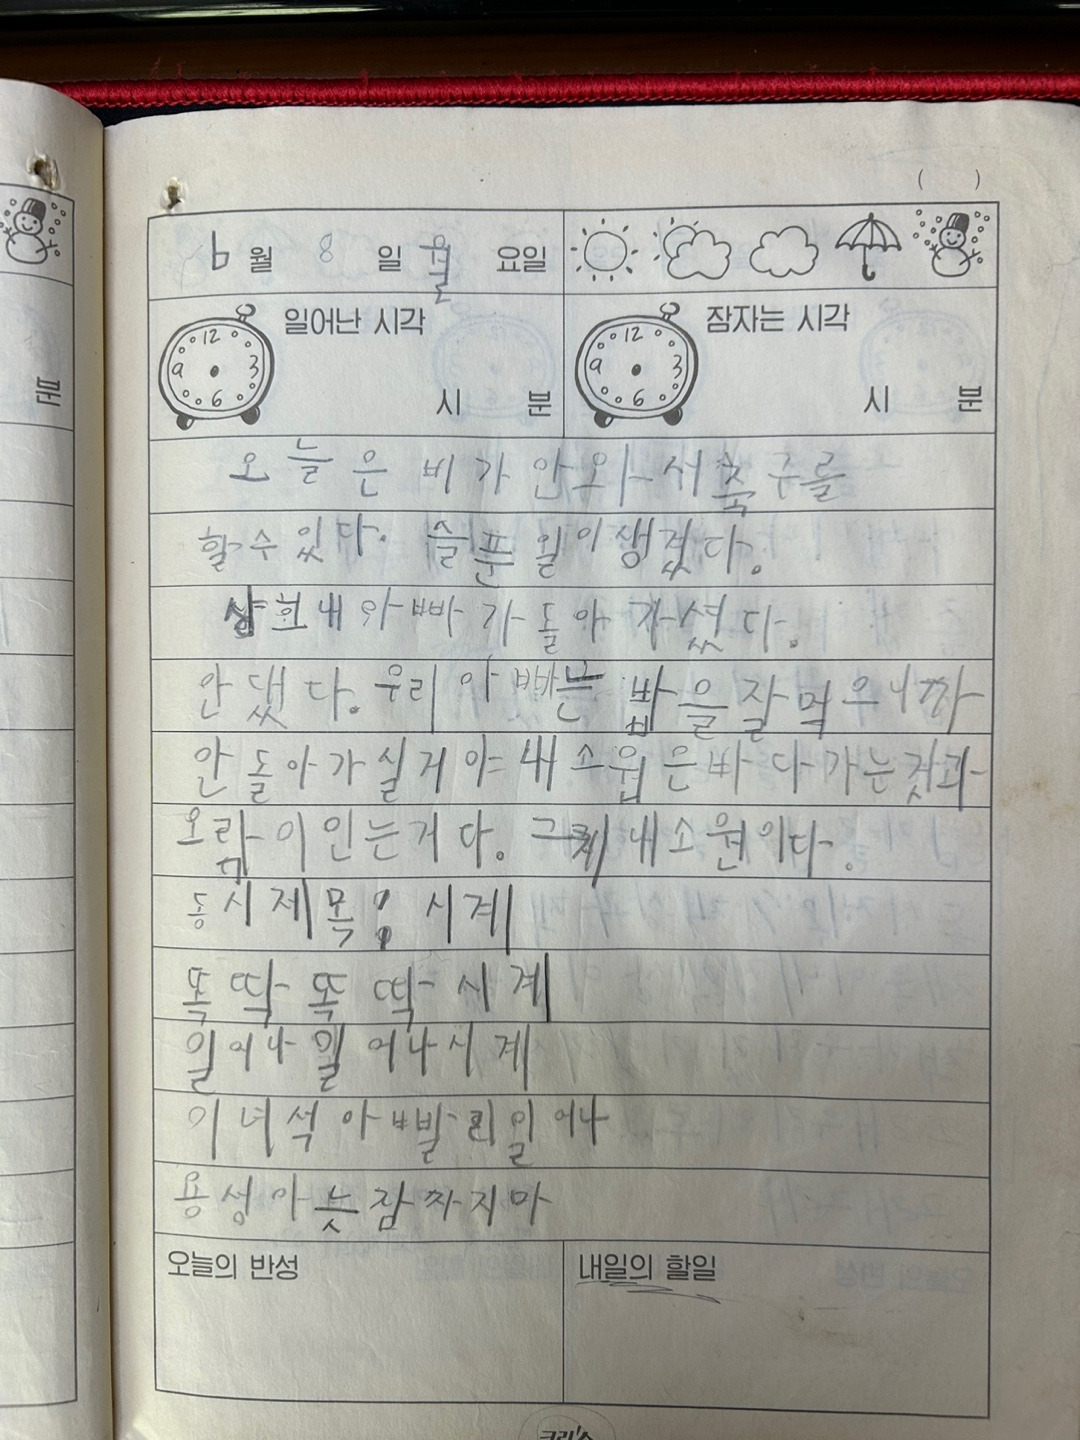 ( )
6 월 8 일 월 요일
일어난 시각
12 3 6 9
시 분
잠자는 시각
12 3 6 9
시 분
분
오늘은 비가 안와서 축구를
할수 있다. 슬푼 일이 생겼다.
상희내 아빠가 돌아가셨다.
안댔다. 우리 아빠는 밥을 잘 먹으니까
안돌아가실거야 내 소원은 바다가는것과
오락이인는거다. 그게 내소원이다.
동시제목: 시계
똑딱 똑딱 시계
일어나 일어나 시계
이녀석아 빨리일어나
용성아 늦잠짜지마
오늘의 반성
내일의 할일